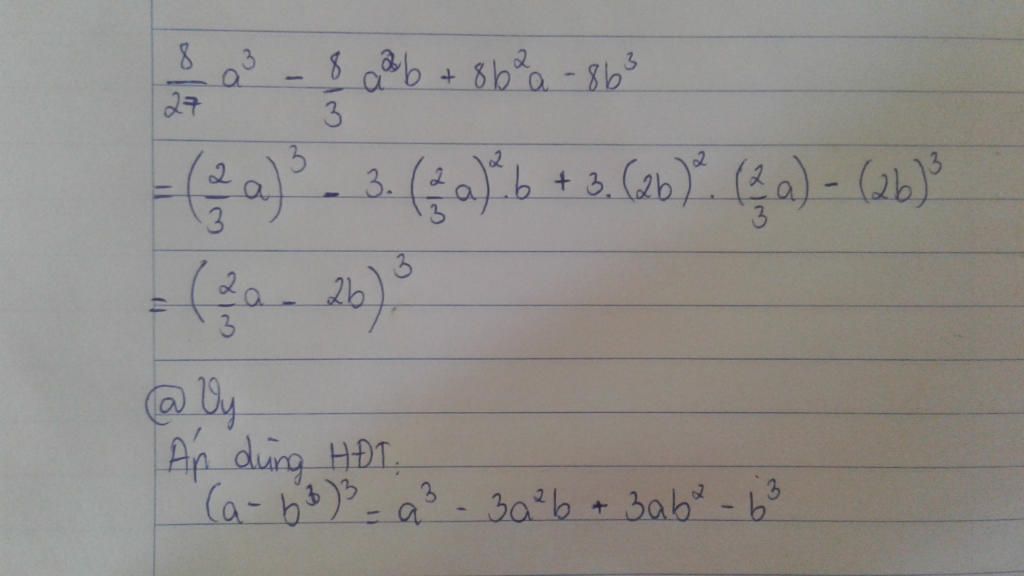 8/27 a³ - 8/3 a²b + 8b²a - 8b³
= (2/3 a)³ - 3.(2/3 a)².b + 3.(2b)².(2/3 a) - (2b)³
= (2/3 a - 2b)³
@ Vy
Áp dùng HĐT:
(a - b³)³ = a³ - 3a²b + 3ab² - b³